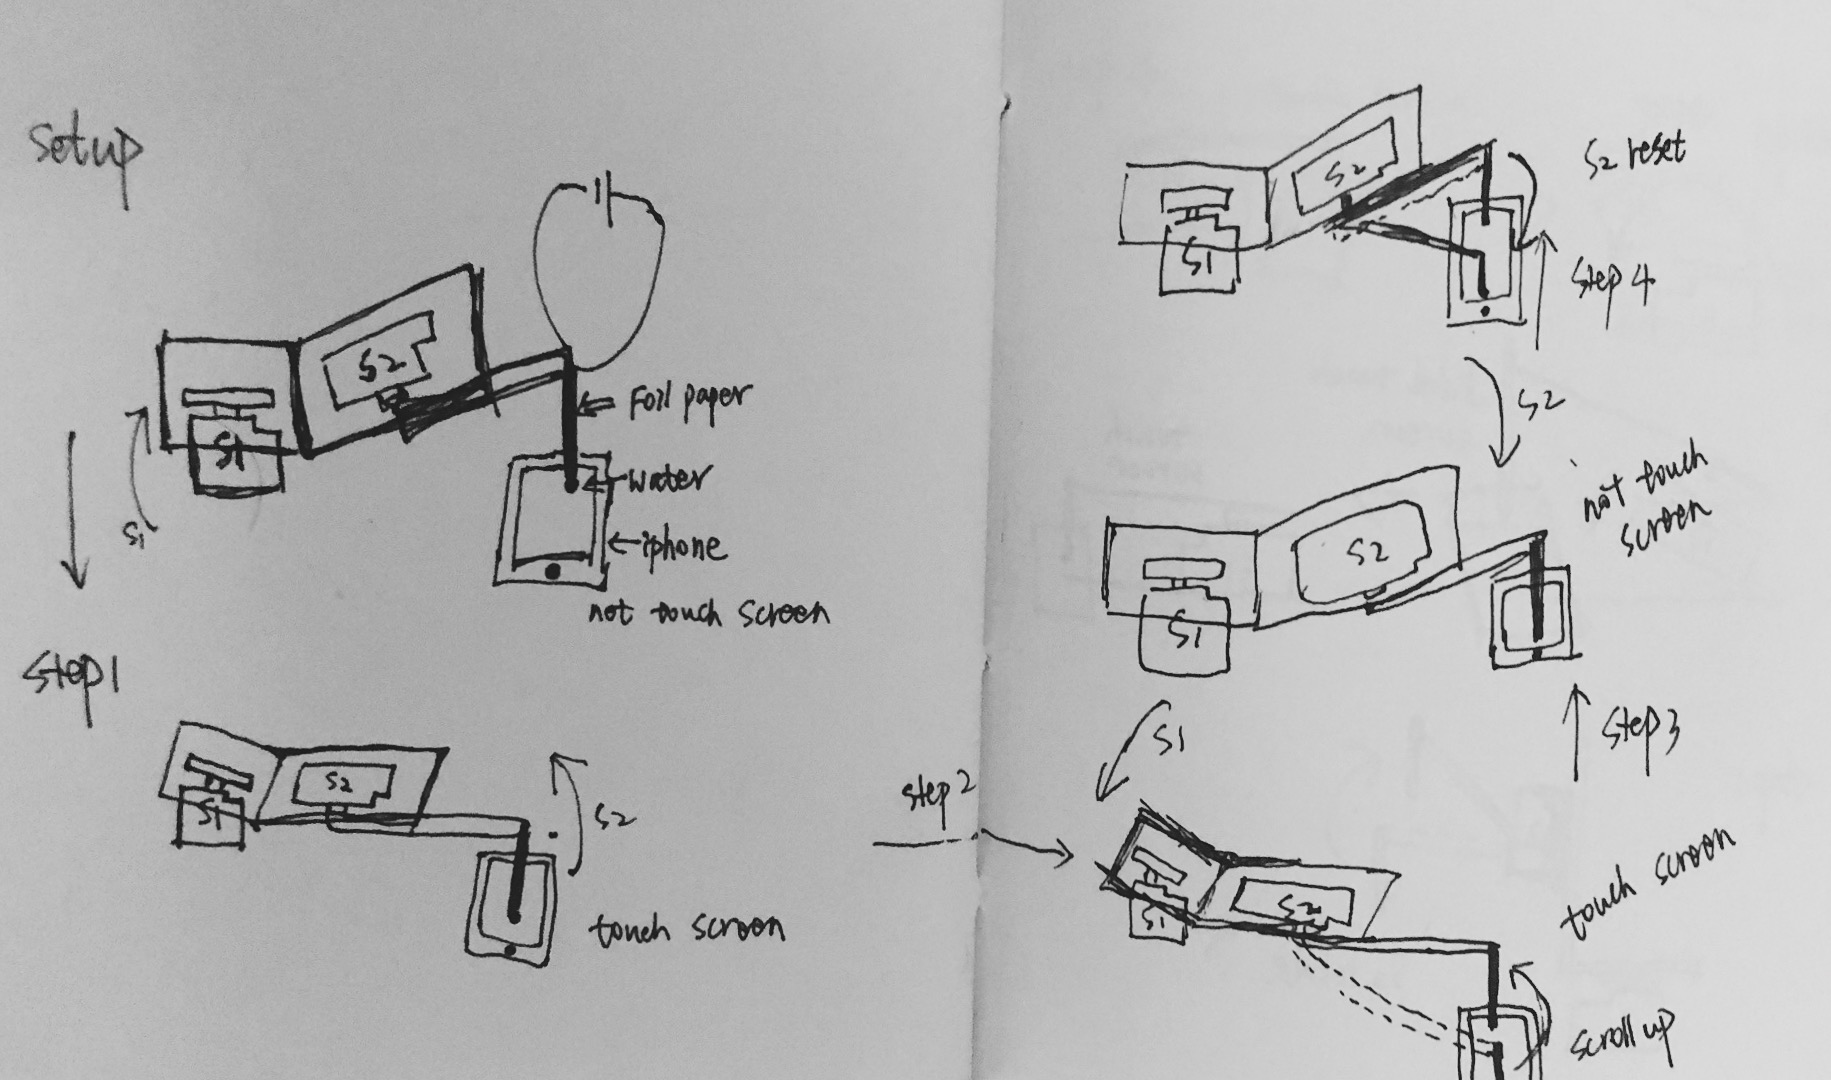 setup
S2
S1
S1
Foil paper
water
iphone
not touch screen
step1
S2
S1
S2
touch screen
step 2
S2
S1
S2 reset
step 4
S2
not touch
screen
S2
S1
S1
step 3
S2
S1
touch screen
scroll up